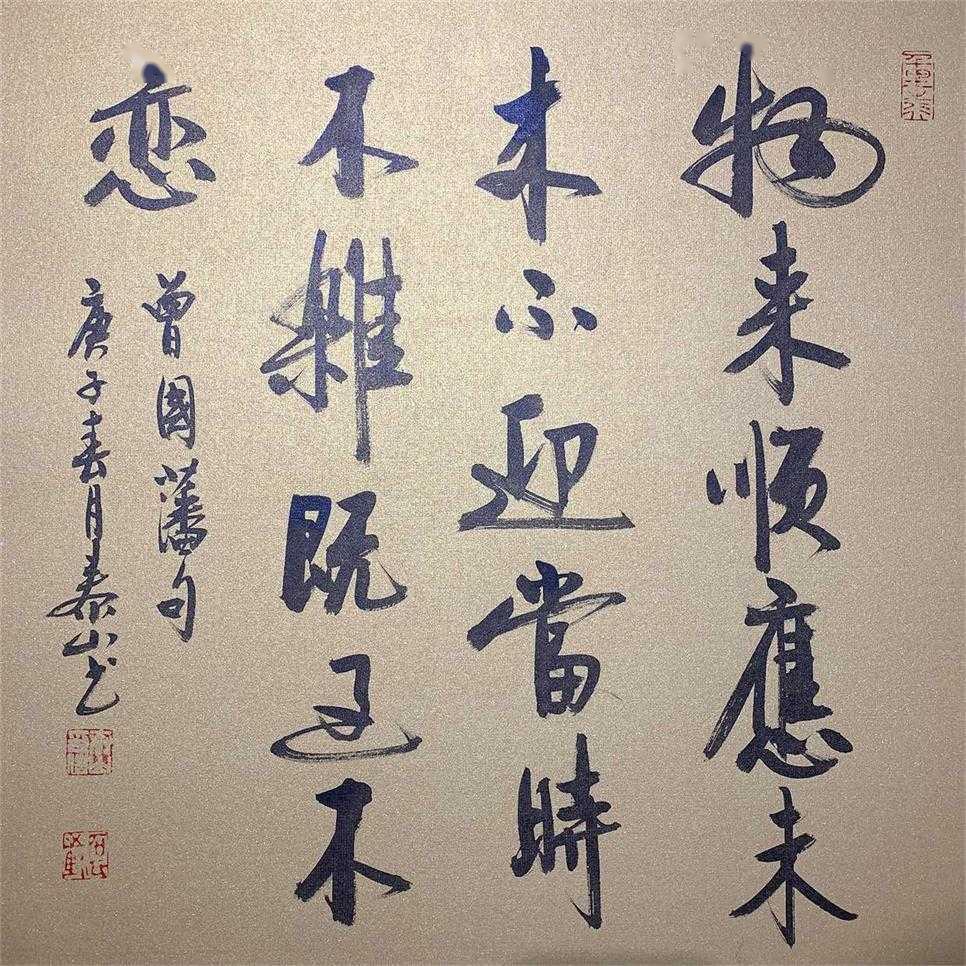 物来顺應未
来不迎當時
不雜既过不
恋
曾國藩句
庚子春月泰山书